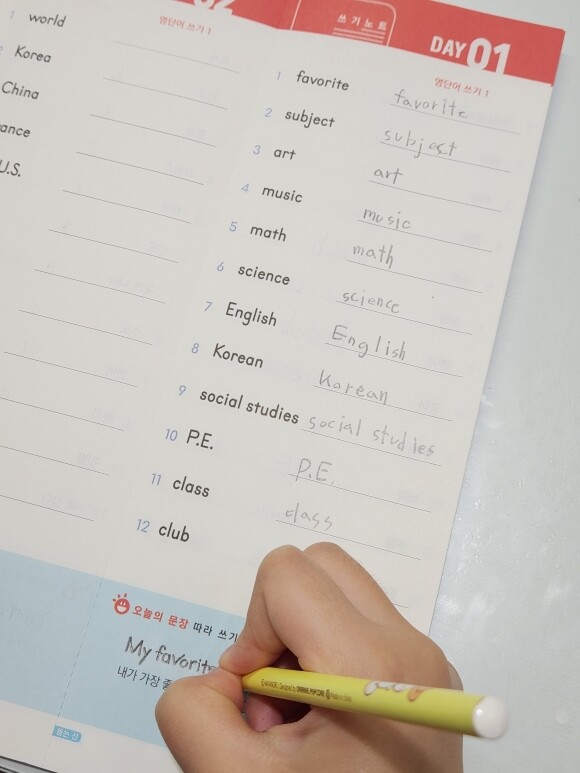 02
영단어 쓰기 1
world
Korea
China
ance
U.S.
쓰기노트
DAY 01
영단어 쓰기 1
1 favorite favorite
2 subject subject
3 art art
4 music music
5 math math
6 science science
7 English English
8 Korean Korean
9 social studies social studies
10 P.E. P.E.
11 class class
12 club
오늘의 문장 따라 쓰기
My favorite
내가 가장 좋